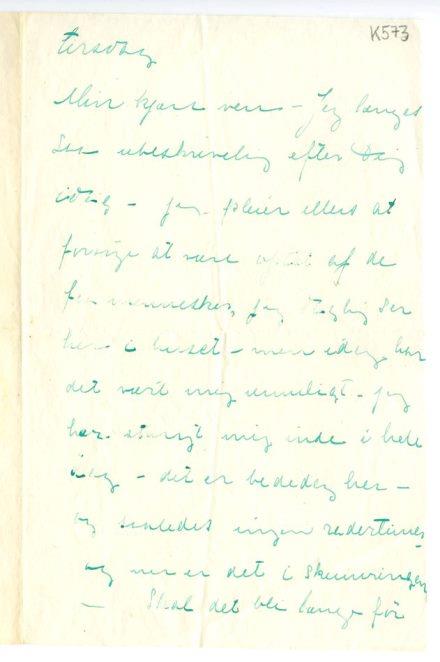 K573
tirsdag
Min kjære ven – Jeg længes
saa ubeskrivelig efter Dig
idag – jeg pleier ellers at
forsøge at være optat af de
faa mennesker, jeg daglig ser
her i huset – men idag har
det vært mig umuligt – jeg
har stængt mig inde i hele
dag – det er bededag her –
og saaledes ingen
og nu er det i skumringen
– Skal det bli længe før